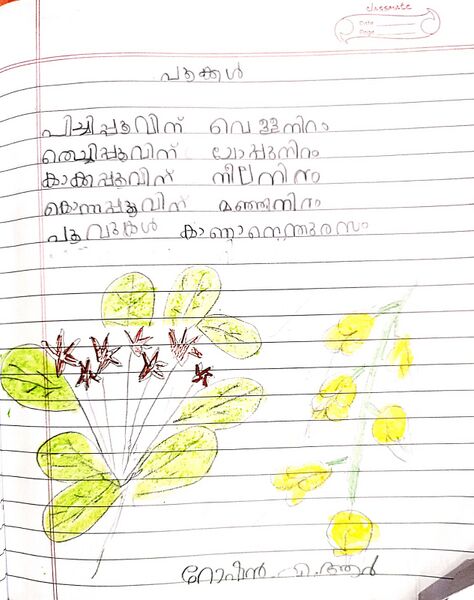 classmate
Date
Page
പൂക്കൾ
പിച്ചിപ്പൂവിന് വെള്ളനിറം
തെച്ചിപ്പൂവിന് ചോപ്പുനിറം
കാക്കപ്പൂവിന് നീലനിറം
കൊന്നപ്പൂവിന് മഞ്ഞനിറം
പൂവുകൾ കാണാനെന്തുരസം